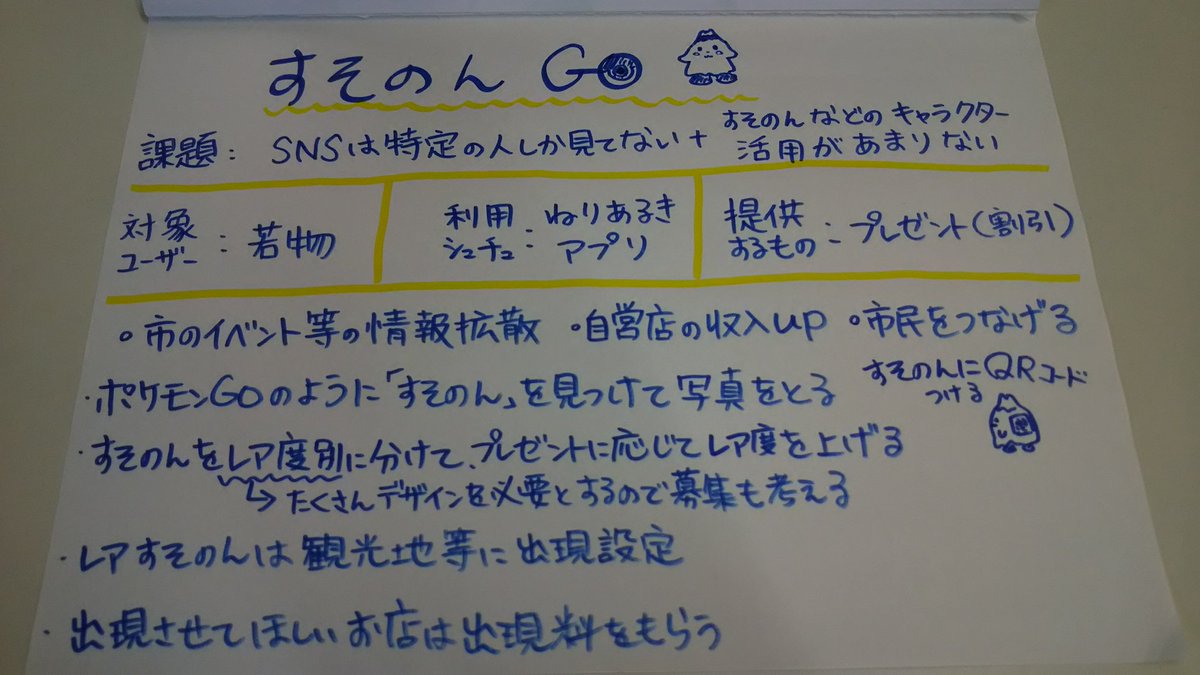 すそのん GO
課題: SNSは特定の人しか見てない+ すそのんなどのキャラクター
活用があまりない
対象
ユーザー : 若物
利用
シュチュ : ねりあるき
アプリ
提供
するもの : プレゼント(割引)
○市のイベント等の情報拡散 ・自営店の収入up ・市民をつなげる
・ポケモンGOのように「すそのん」を見つけて写真をとる
すそのんにQRコード
つける
・すそのんをレア度別に分けて、プレゼントに応じてレア度を上げる
↳ たくさんデザインを必要とするので募集も考える
・レアすそのんは観光地等に出現設定
・出現させてほしいお店は出現料をもらう